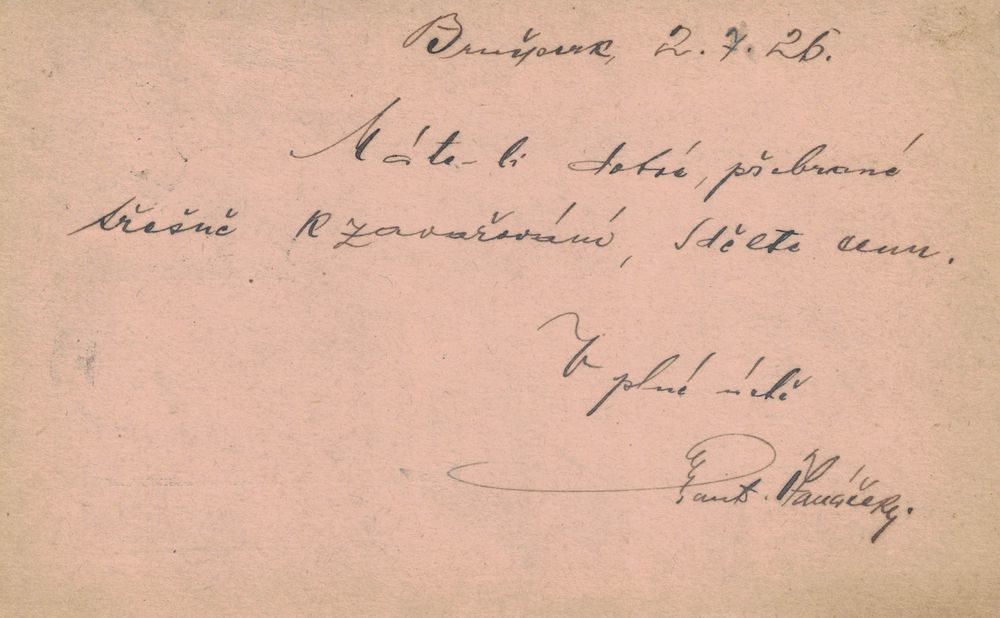 Brušperk, 2.7.26.
Máte-li dobré, přebrané
třešně k zavařování, sdělte cenu.
V plné úctě
Frant.